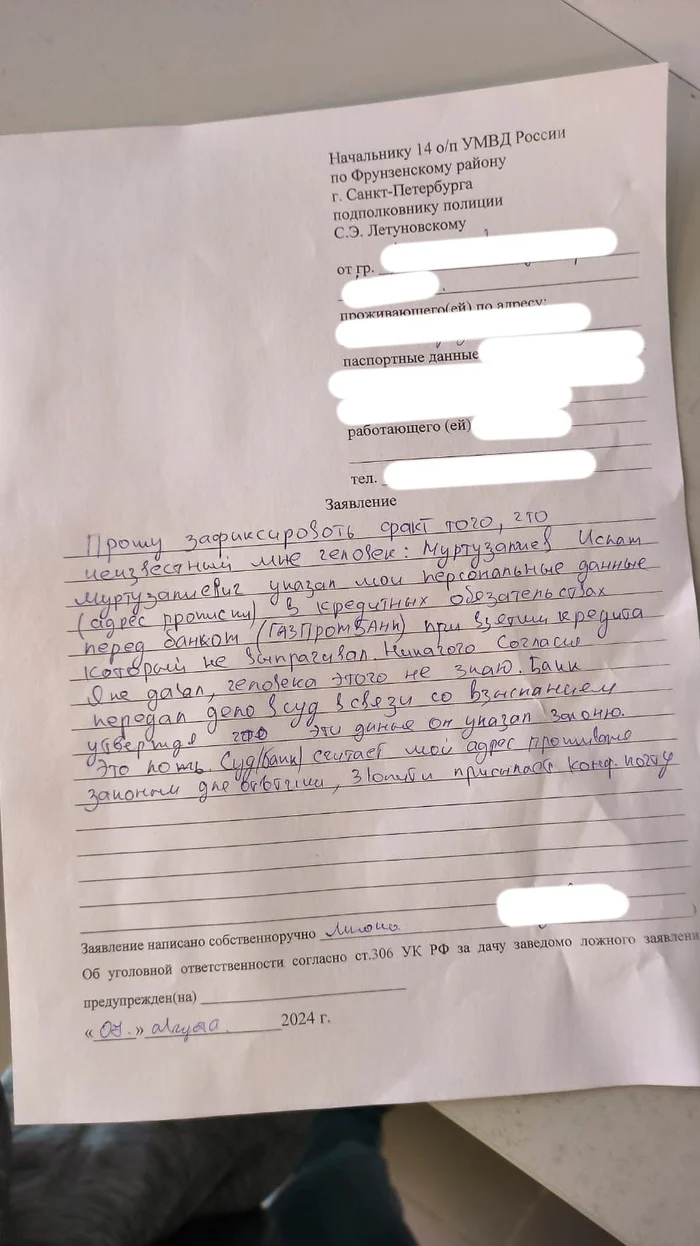 Начальнику 14 о/п УМВД России
по Фрунзенскому району
г. Санкт-Петербурга
подполковнику полиции
С.Э. Летуновскому
от гр.
проживающего(ей) по адресу:
паспортные данные
работающего (ей)
тел.
Заявление
Прошу зафиксировать факт того, что
неизвестный мне человек: Муртузалиев Ислам
Муртузалиевич указал мои персональные данные
(адрес прописки) в кредитных обязательствах
перед банком (ГАЗПРОМБАНК) при взятии кредита
который не выпрачивал. Никакого согласия
Я не давал, человека этого не знаю. Банк
передал дело в суд в связи со взысканием
утверждая что эти данные он указал законно.
Это ложь. Суд/банк считает мой адрес
законным для присылает конф. почту
Заявление написано собственноручно лично
Об уголовной ответственности согласно ст.306 УК РФ за дачу заведомо ложного заявлени
предупрежден(на)
« 07. » августа 2024 г.